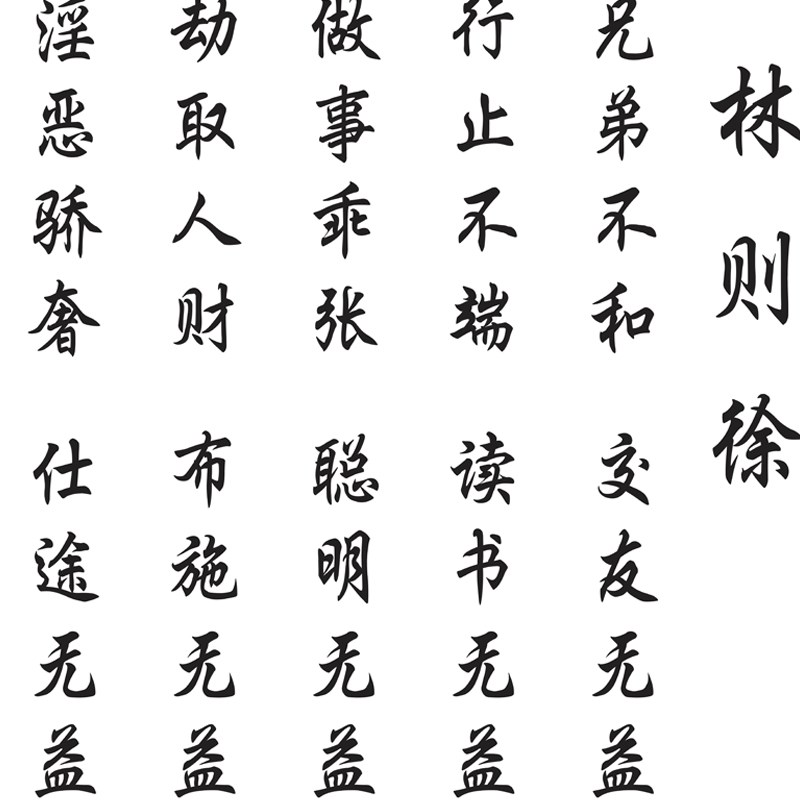 林则徐
兄弟不和 交友无益
行止不端 读书无益
做事乖张 聪明无益
劫取人财 布施无益
淫恶骄奢 仕途无益